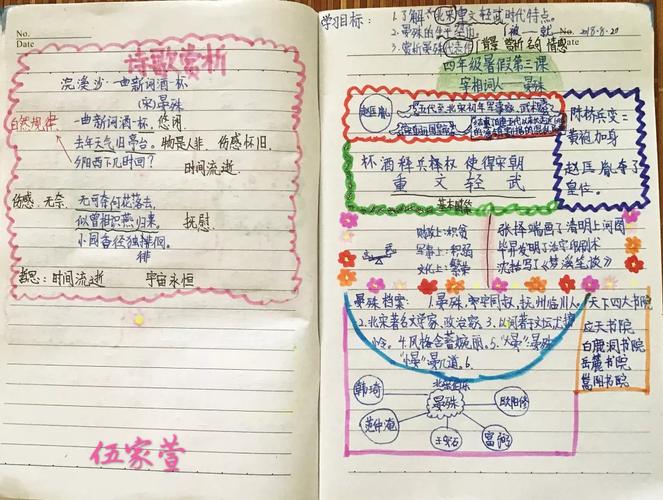 No.
Date
诗歌赏析
浣溪沙·一曲新词酒一杯
(宋)晏殊
自然规律
一曲新词酒一杯，悠闲
去年天气旧亭台。物是人非 伤感怀旧
夕阳西下几时回？
时间流逝
伤感、无奈
无可奈何花落去，
似曾相识燕归来。 抚慰
小园香径独徘徊。
徘
哲思：时间流逝 宇宙永恒
伍家萱
No.
Date
学习目标：
1.了解"北宋重文轻武"时代特点。
2.晏殊的生平
2018.8.20
3.赏析晏殊代表作 背景 赏析 名句 情感
四年级暑假第三课
宰相词人 晏殊
赵匡胤
陈桥兵变：
黄袍加身
赵匡胤夺了
皇位。
杯酒释兵权 使得宋朝
重文轻武
基本国策
财政上：积贫
军事上：积弱
文化上：繁荣
张择端画了清明上河图
毕昇发明了活字印刷术
沈括写了《梦溪笔谈》
晏殊档案：1.晏殊，字同叔，抚州临川人。
2.北宋著名文学家、政治家。3.
4.风格含蓄婉丽。5."大晏"晏殊
"小晏"晏几道。6.
天下四大书院
应天书院
白鹿洞书院
岳麓书院
嵩阳书院
韩琦
晏殊
欧阳修
范仲淹
王安石
富弼